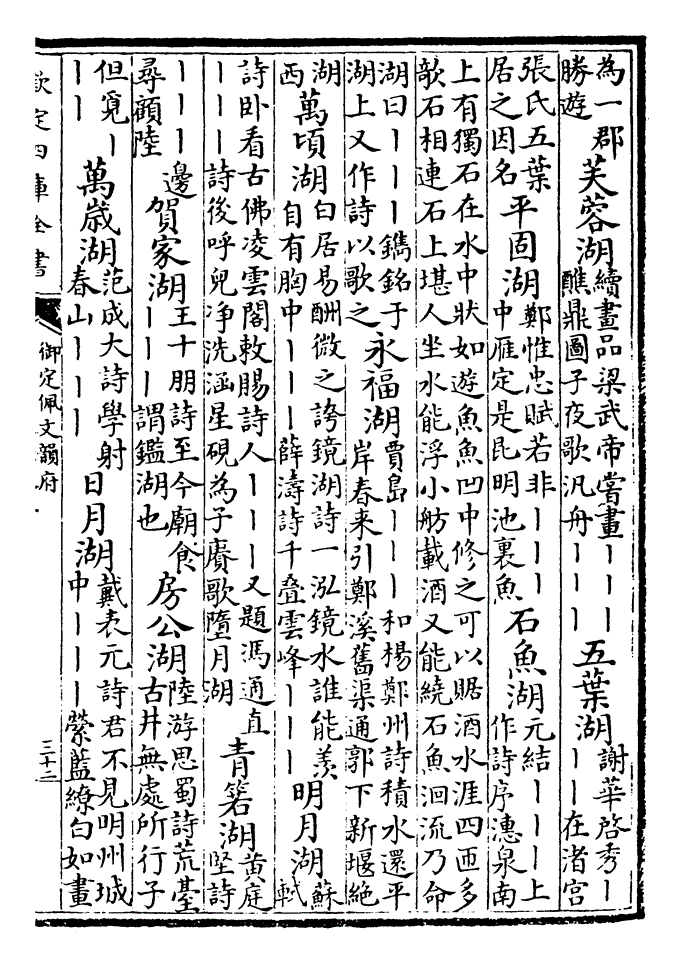 為一郡勝遊 芙蓉湖 續畫品梁武帝嘗畫｜｜｜醮鼎圖子夜歌汎舟｜｜｜ 五葉湖 謝華啓秀｜｜｜在渚宮
張氏五葉居之因名 平固湖 鄭惟忠賦若非｜｜｜中雁定是昆明池裏魚 石魚湖 元結｜｜｜上作詩序漶泉南
上有獨石在水中狀如遊魚魚凹中修之可以貯酒水涯四匝多欹石相連石上堪人坐水能浮小舫載酒又能繞石魚洄流乃命
湖曰｜｜｜鐫銘于湖上又作詩以歌之 永福湖 賈島｜｜｜和楊鄭州詩積水還平岸春来引鄭溪舊渠通郭下新堰絶
湖西 萬頃湖 白居易酬微之誇鏡湖詩一泓鏡水誰能羨自有胸中｜｜｜薛濤詩千叠雲峰｜｜｜ 明月湖 蘇軾
詩卧看古佛凌雲閣敕賜詩人｜｜｜又題馮通直｜｜｜詩後呼兒净洗涵星硯為子賡歌墮月湖 青箬湖 黄庭堅詩
｜｜｜邊尋顧陸 賀家湖 王十朋詩至今廟食｜｜｜謂鑑湖也 房公湖 陸游思蜀詩荒臺古井無處所行子
但覔｜｜｜ 萬歲湖 范成大詩學射春山｜｜｜ 日月湖 戴表元詩君不見明州城中｜｜｜縈藍繚白如畫
欽定四庫全書
御定佩文韻府
三十二